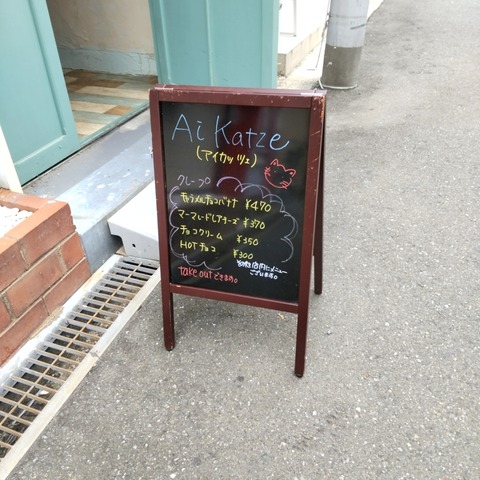 Ai Katze
(アイカッツェ)
クレープ
キャラメルチョコバナナ ¥470
マーマレードレアチーズ ¥370
チョコクリーム ¥350
HOTチョコ ¥300
他店内にメニュー
ございます。
take outできます。